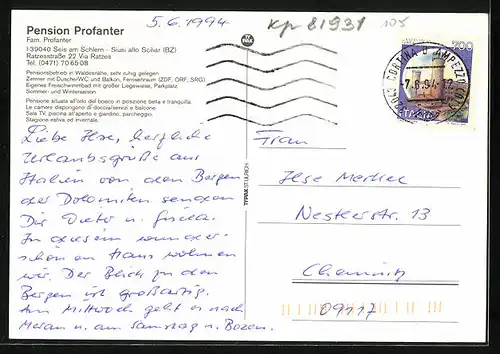 Pension Profanter
Fam. Profanter
I-39040 Seis am Schlern - Siusi allo Sciliar (BZ)
Ratzesstraße 22 Via Ratzes
Tel. (0471) 70 65 08
Pensionsbetrieb in Waldesnähe, sehr ruhig gelegen.
Zimmer mit Dusche/WC und Balkon, Fernsehraum (ZDF, ORF, SRG)
Eigenes Freischwimmbad mit großer Liegewiese, Parkplatz.
Sommer- und Wintersaison
Pensione situata all'orlo del bosco in posizione bella e tranquilla.
Le camere dispongono di doccia/servizi e balcone.
Sala TV, piscina all'aperto e giardino, parcheggio.
Stagione estiva ed invernale.
5.6.1994
kp 81931
105
Liebe Ilse, herzliche
Urlaubsgrüße aus
Italien von den Bergen
der Dolomiten senden
Dir Dieter u. Gisela.
In diesem wunder-
schönen Haus wohnen
wir. Der Blick zu den
Bergen ist großartig.
Am Mittwoch geht es nach
Meran u. am Samstag n. Bozen.
TYPAK ST. ULRICH
700
CORTINA D'AMPEZZO
7.6.94
Frau
Ilse Merkel
Neskerstr. 13
Chemnitz
09117